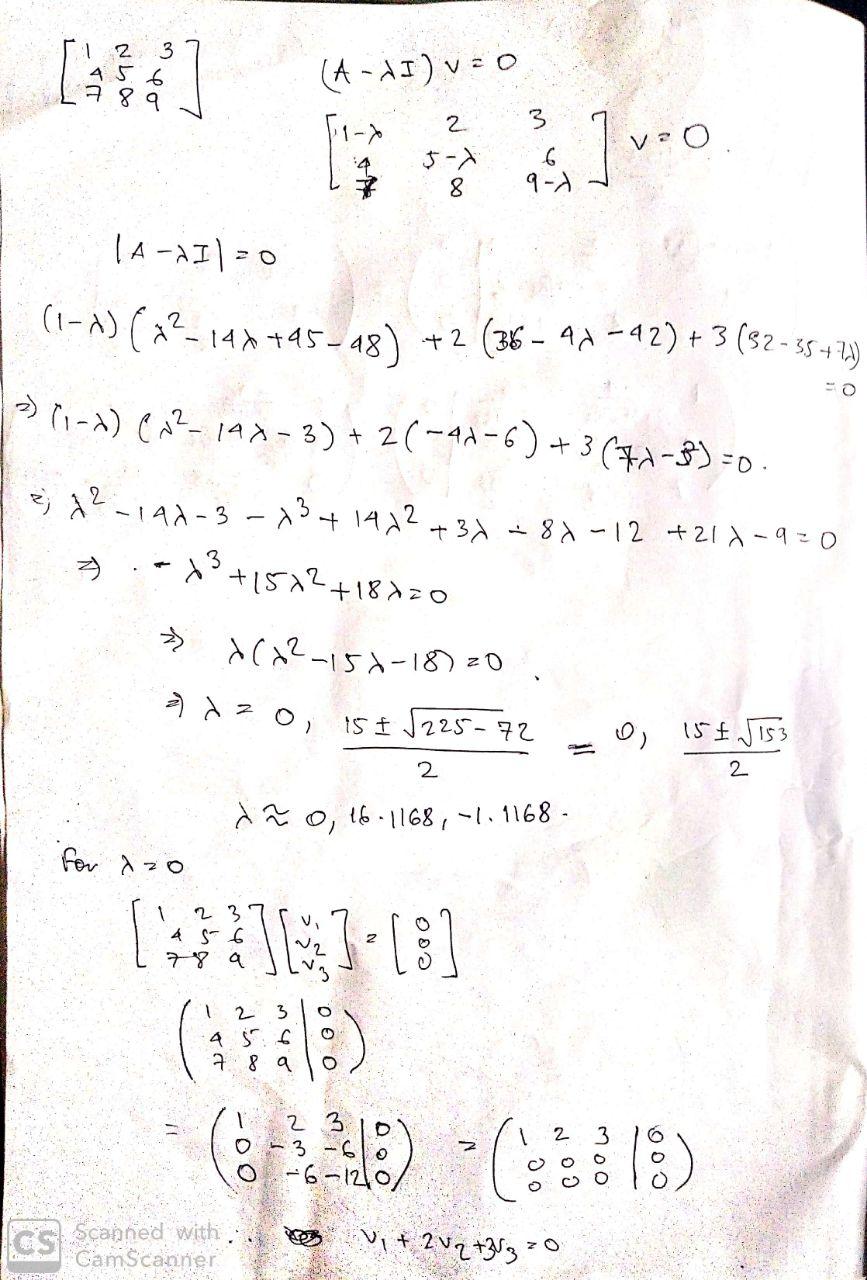 [1 2 3; 4 5 6; 7 8 9] (A - λI) v = 0
[1-λ 2 3; 4 5-λ 6; 7 8 9-λ] v = 0
|A - λI| = 0
(1-λ) (λ² - 14λ + 45 - 48) + 2 (36 - 4λ - 42) + 3 (32 - 35 + 7λ)
= 0
⇒ (1-λ) (λ² - 14λ - 3) + 2 (-4λ - 6) + 3 (7λ - 3) = 0.
⇒ λ² - 14λ - 3 - λ³ + 14λ² + 3λ - 8λ - 12 + 21λ - 9 = 0
⇒ - λ³ + 15λ² + 18λ = 0
⇒ λ(λ² - 15λ - 18) = 0
⇒ λ = 0, (15 ± √(225 - 72))/2 = 0, (15 ± √153)/2
λ ≈ 0, 16.1168, -1.1168.
For λ = 0
[1 2 3; 4 5 6; 7 8 9] [v₁; v₂; v₃] = [0; 0; 0]
(1 2 3 | 0; 4 5 6 | 0; 7 8 9 | 0)
= (1 2 3 | 0; 0 -3 -6 | 0; 0 -6 -12 | 0) = (1 2 3 | 0; 0 0 0 | 0; 0 0 0 | 0)
∴ v₁ + 2v₂ + 3v₃ = 0
CS Scanned with
CamScanner